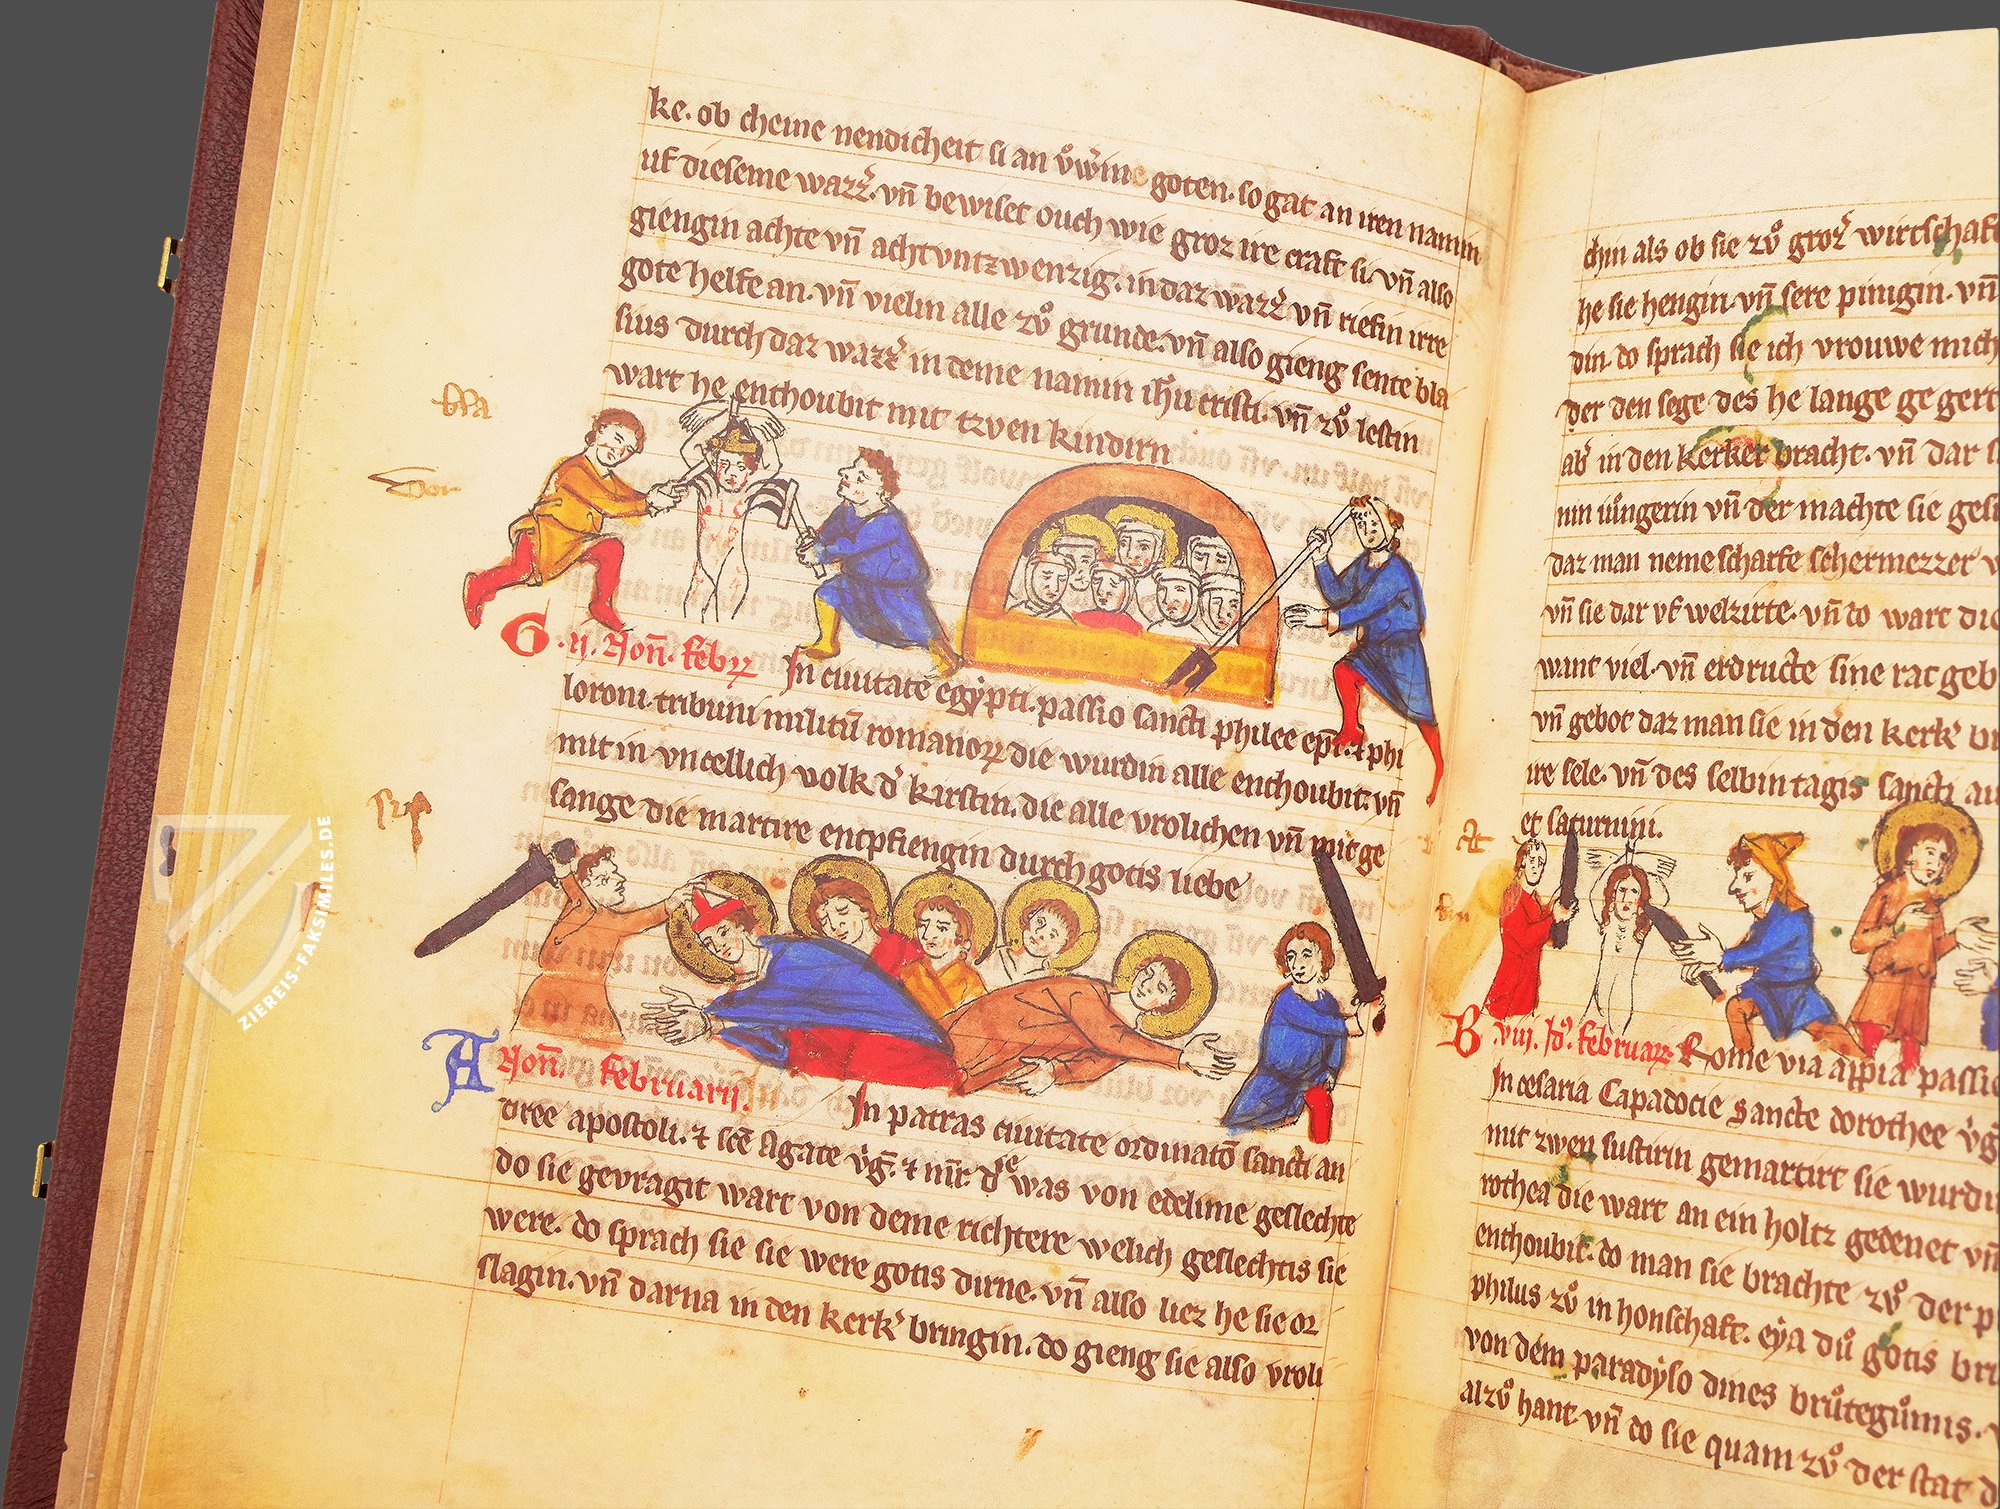 ke. ob cheine nendicheit si an v̊w̄me goten. so gat an iren namin
uf dieseme wazz̄. vn̄ bewiset ouch wie groz ire craft si. vn̄ also
giengin achte vn̄ achtvntzwenzig. in daz wazz̄ vn̄ riefin irre
gote helfe an. vn̄ vielin alle zv̊ grunde. vn̄ also gieng sente bla
sius durch daz wazz̄ in deme namin ih̄u cristi. vn̄ zv̊ lestin
wart he enthoubit mit tzven kindirn
bla
G .ij. Non̄. febrꝝ In ciuitate egypti. passio sancti philee ep̄i. ⁊ phi
loromi. tribuni militū romanoꝝ die wurdin alle enthoubit. vn̄
mit in vncellich volk d̄ kirstin. die alle vrolichen vn̄ mitge
sange die martire entpfiengin durch gotis liebe
A Non̄. februarii. In patras ciuitate ordinatō sancti an
dree apostoli. ⁊ sc̄e Agate v̄ḡ. ⁊ mr̄. dͤ was von edelime geslechte
do sie gevragit wart von deme richtere welich geslechtis sie
were. do sprach sie sie were gotis dirne. vn̄ also liez he sie oz
slagin. vn̄ darna in den kerk̄ bringin. do gieng sie also vroli
chin als ob sie zv̊ groz̄ wirtschaft
he sie hengin. vn̄ sere pinigin. vn̄
din. do sprach sie ich vrouwe mich
der den sege des he lange gegert
ab̄ in den kerker bracht. vn̄ dar
min iůngerin vn̄ der machte sie
daz man neme scharfe schermezzer
vn̄ sie dar vf welzirte. vn̄ do wart die
want viel. vn̄ erdructe sine rat geb
vn̄ gebot daz man sie in den kerk̄
ire sele. vn̄ des selbin tagis sancti
et saturnini.
B .viij. Id̄. februarꝝ Rome via appia passio
In cesaria Capadocie Sancte dorothee v̄ḡ
mit zwen sustirin gemartirt sie wurdin
rothea die wart an ein holtz gedenet vn̄
enthoubit. do man sie brachte zv̊ der
philus zv̊ in honschaft. eya dů gotis
von dem paradyso dines brůtegůmis.
alzv̊ hant. vn̄ do sie quam zv̊ der stat
ZIEREIS-FAKSIMILES.DE